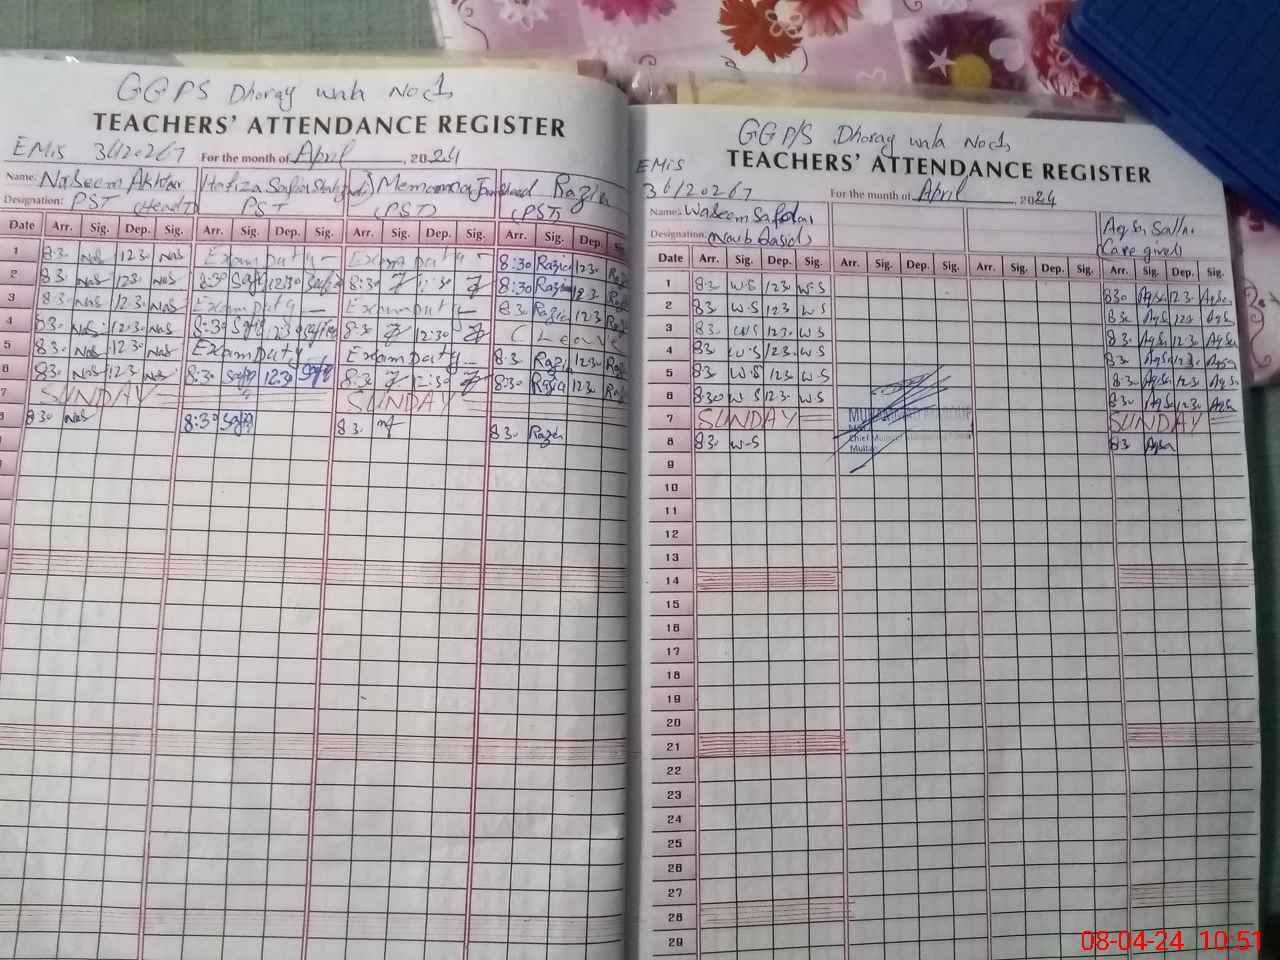 GGPS Dhoray wala No 1
TEACHERS' ATTENDANCE REGISTER
EMIS 36120267 For the month of April, 2024
Name: Naseem Akhtar Hafiza Safia Razia
Designation: PST (Head) PST (PST) (PST)
Date Arr. Sig. Dep. Sig. Arr. Sig. Dep. Sig. Arr. Sig. Dep. Sig. Arr. Sig. Dep. Sig.
1 8:3. Nas 12:3. Nas Exam duty - Exam duty - 8:30 Razia 12:3.
2 8:3. Nas 12:3. Nas 8:30 Safia 12:30 Safia 8:30 12:30 8:30 Razia 12:3.
3 8:3. Nas 12:3. Nas Exam duty - Exam duty - 8:3. Razia 12:3.
4 8:3. Nas 12:3. Nas 8:30 Safia 12:30 Safia 8:3. 12:30 (Leave
5 8:3. Nas 12:30 Nas Exam duty Exam duty - 8:3. Razia 12:3.
6 8:3. Nas 12:3. Nas 8:30 Safia 12:30 Safia 8:3. 12:30 8:30 Razia 12:3.
7 SUNDAY SUNDAY
8 8:30 Nas 8:30 Safia 8:3. 8:3. Razia
GGP/S Dhoray wala No 1
TEACHERS' ATTENDANCE REGISTER
EMIS
36120267 For the month of April, 2024
Name: Waseem
Designation: (Naib Qasid) (Care giver)
Date Arr. Sig. Dep. Sig. Arr. Sig. Dep. Sig. Arr. Sig. Dep. Sig. Arr. Sig. Dep. Sig.
1 8:3. W.S 12:3. W.S 8:30 Aqsa 12:3. Aqsa
2 8:3. W.S 12:3. W.S 8:3. Aqsa 12:3. Aqsa
3 8:3. W.S 12:3. W.S 8:3. Aqsa 12:3. Aqsa
4 8:3. W.S 12:3. W.S 8:3. Aqsa 12:3. Aqsa
5 8:3. W.S 12:3. W.S 8:3. Aqsa 12:3. Aqsa
6 8:30 W.S 12:3. W.S 8:3. Aqsa 12:3. Aqsa
7 SUNDAY SUNDAY
8 8:3. W-S Multan 8:3. Aqsa
9
10
11
12
13
14
15
16
17
18
19
20
21
22
23
24
25
26
27
28
29
08-04-24 10:51